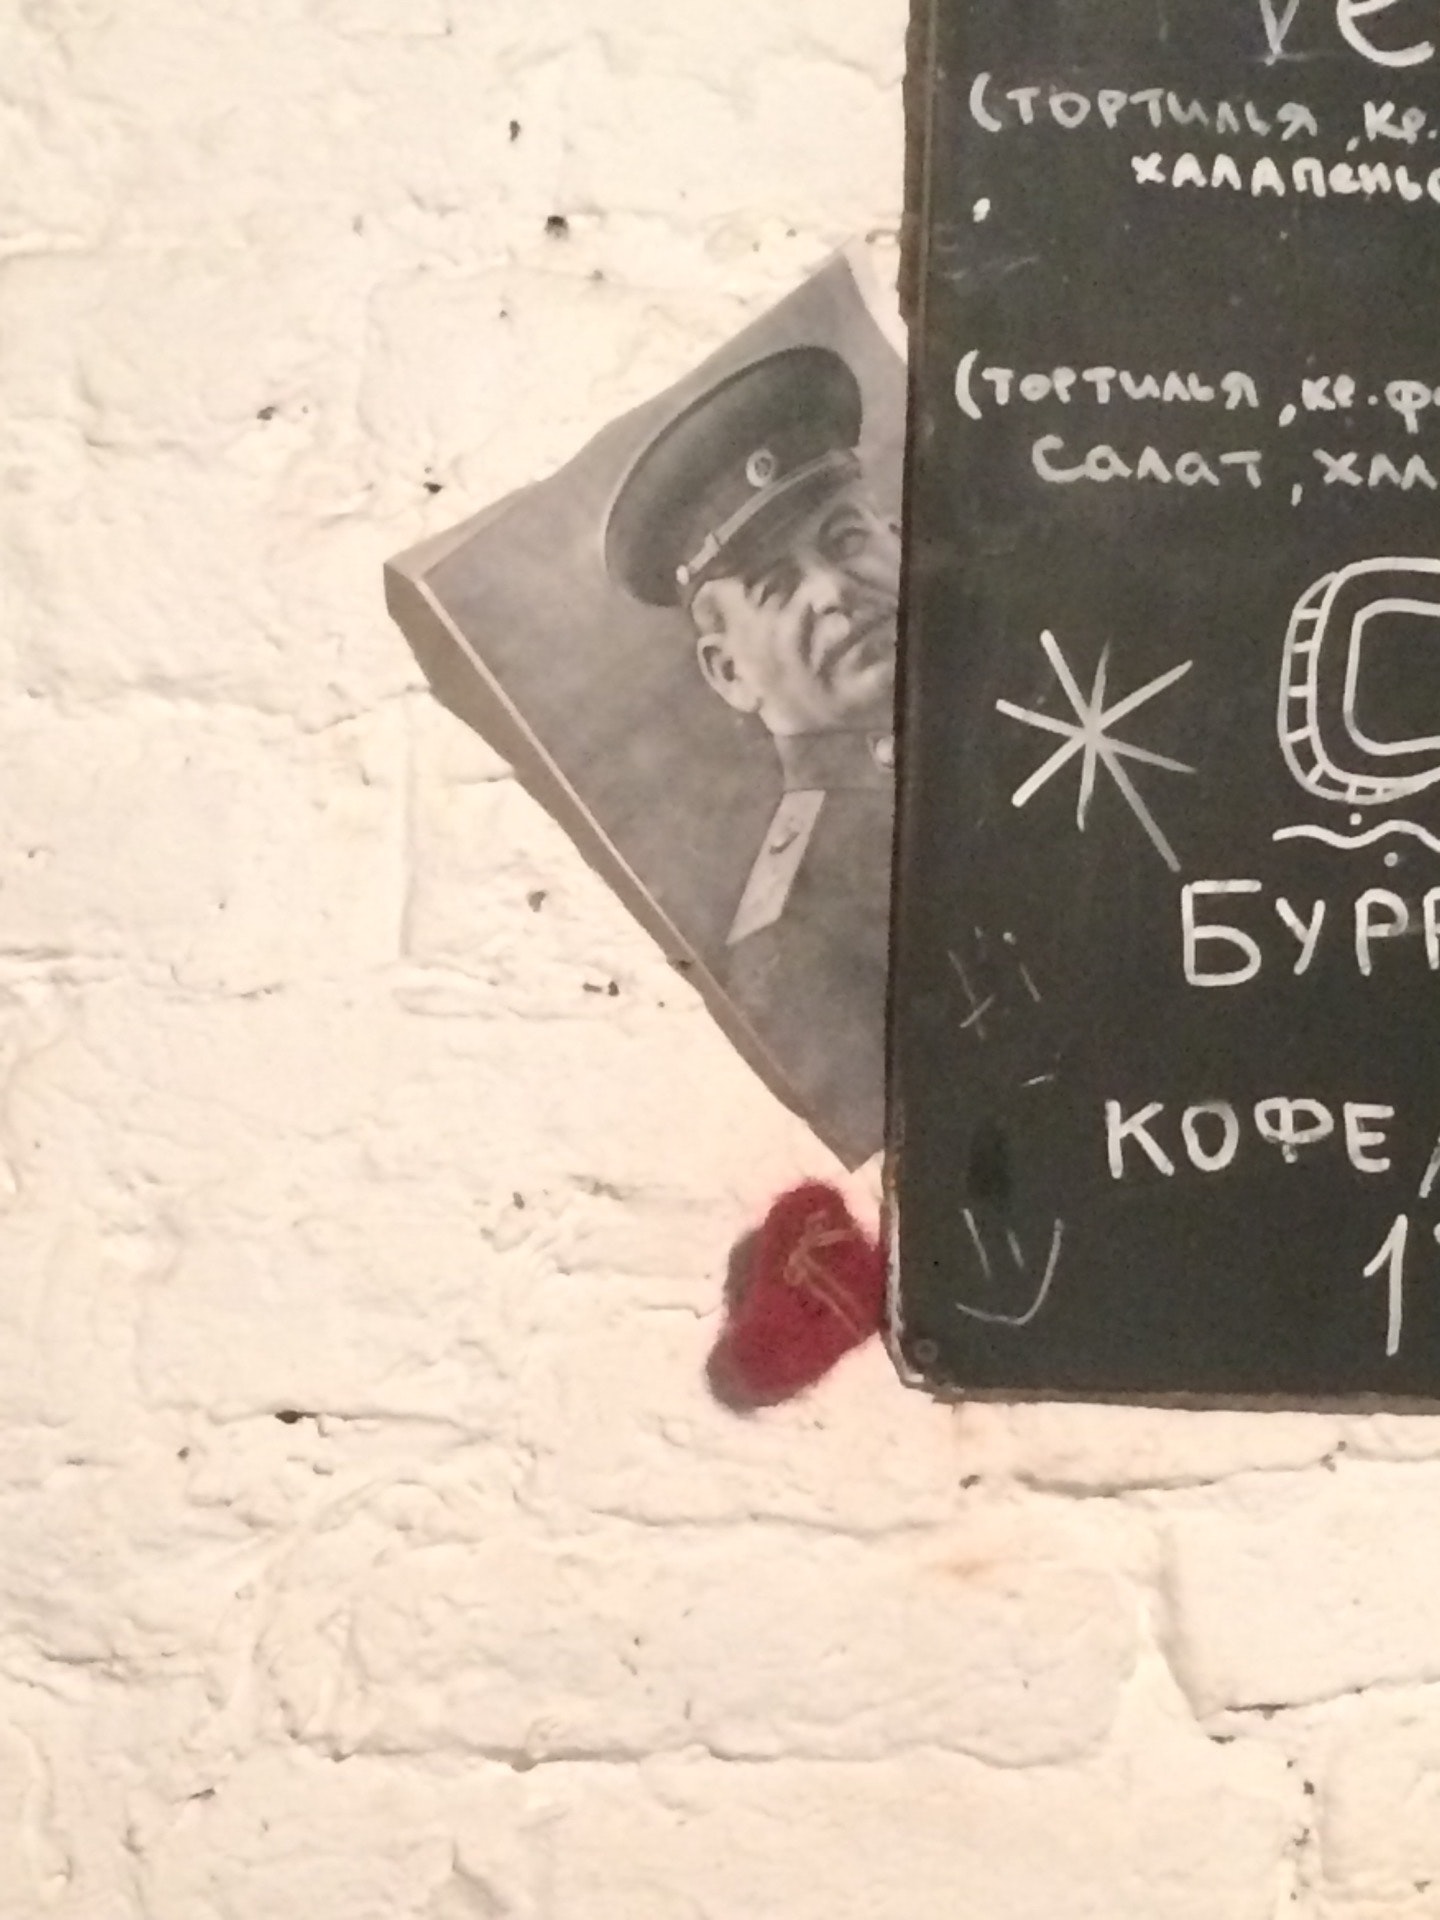 Ve
(ТОРТИЛЬЯ, кр.
ХАЛАПЕНЬО
(ТОРТИЛЬЯ, кр. фа
Салат, хал
БУРР
КОФЕ